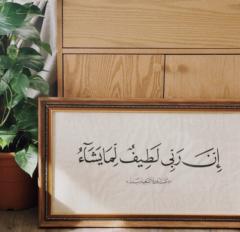 إِنَّ رَبِّي لَطِيفٌ لِمَا يَشَاءُ